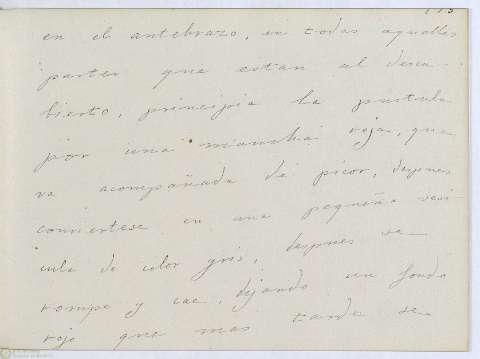 113
en el antebrazo, en todas aquellas
partes que estan al descu-
bierto, principia la pustula
por una mancha roja, que
va acompañada de picor, despues
conviertese en una pequeña vesi
cula de color gris, despues se
rompe y cae, dejando un fondo
rojo que mas tarde se